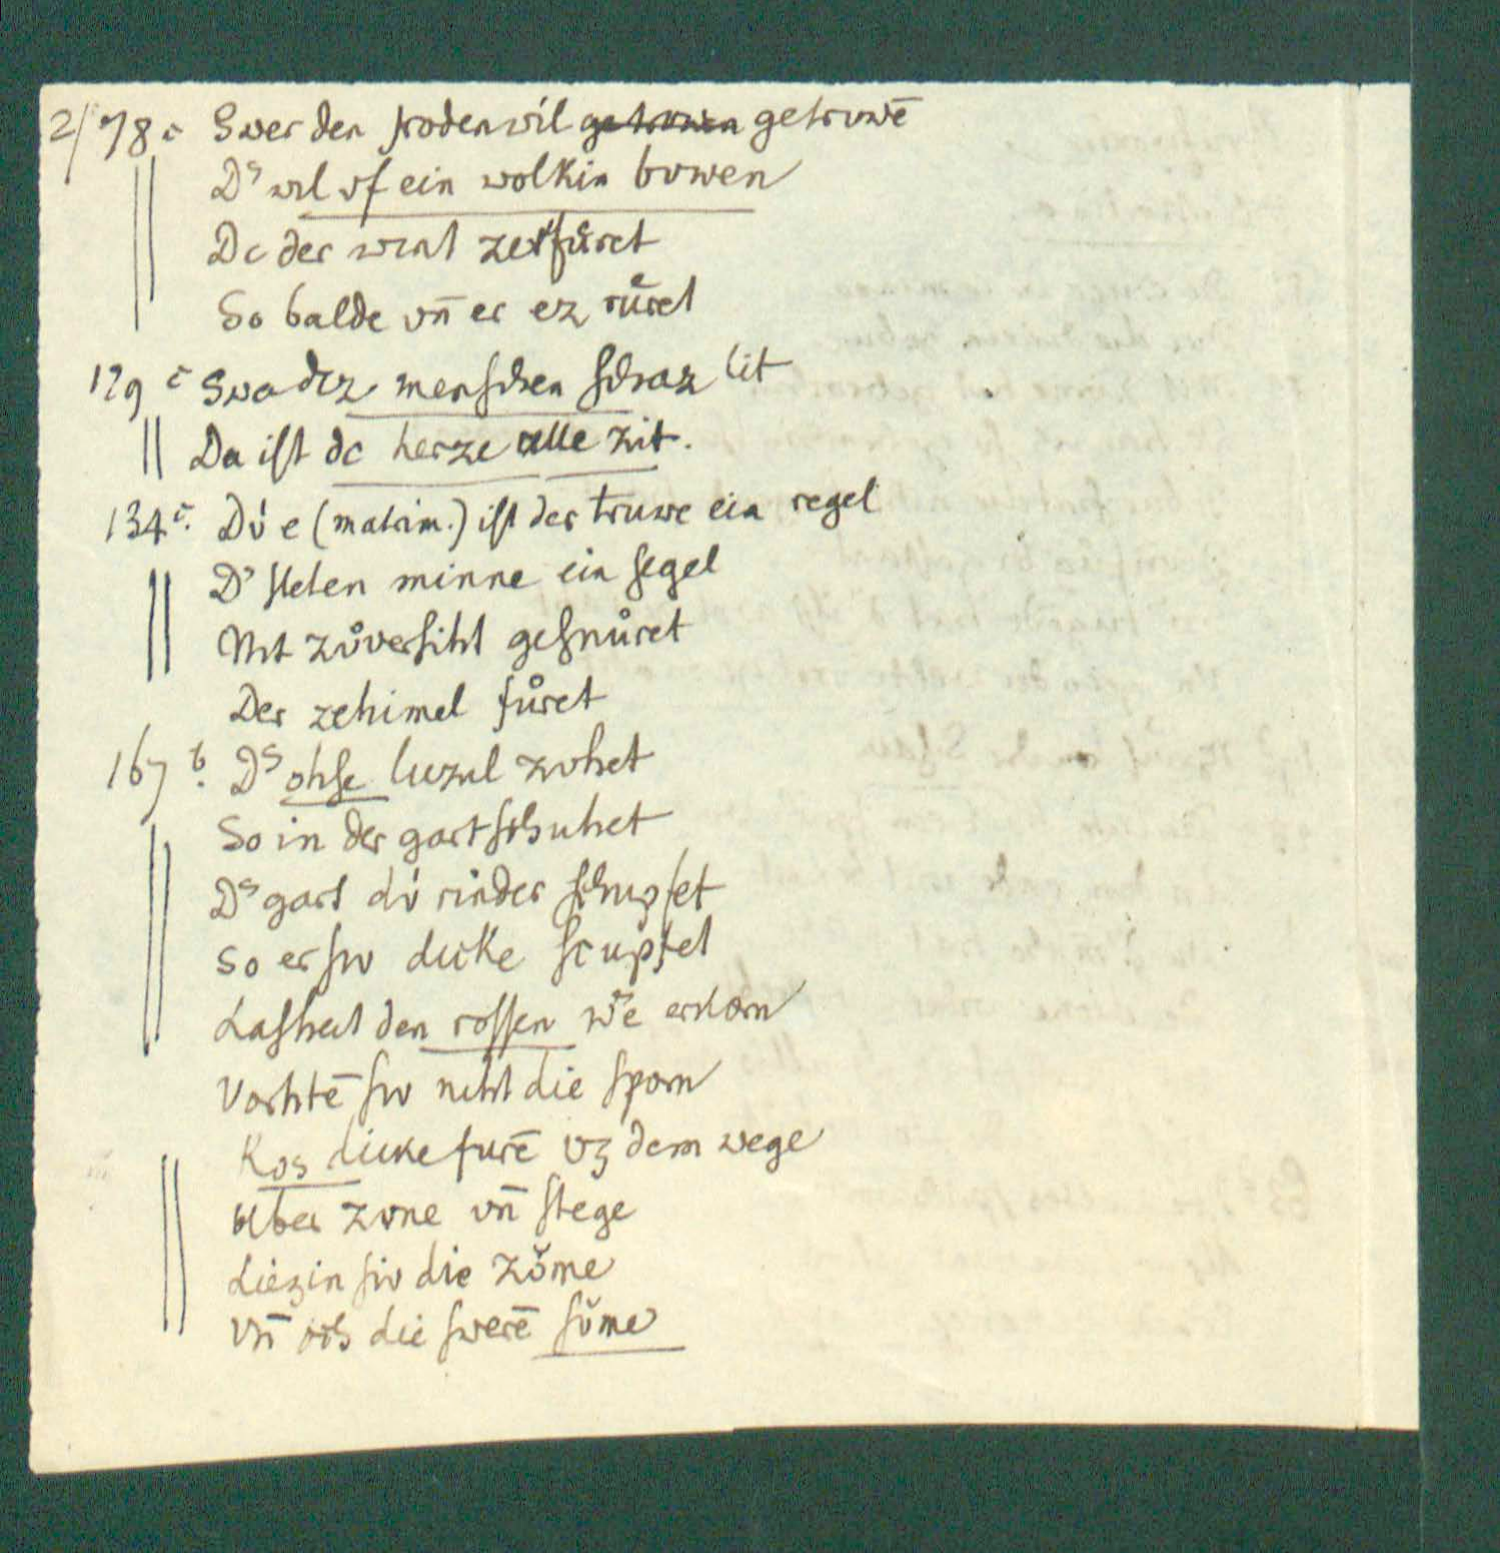 2/ 78 c Swer den frodenwil getrowen getruwē
Ds wil vf ein wolkin bvwen
Dc der wint zerfůret
So balde vn̄ er ez růret
129 c Swa dez menschen schaz lit
Da ist dc herze alle zit.
134 c. Dv́ e (matrim.) ist der truwe ein regel
D' steten minne ein segel
Mit zůversiht gesnůret
Der zehimel fůret
167 b. Ds ohse luzzel zvhet
So in der gart schuhet
Ds gart dv́ rinder schupfet
So er siv dicke scupfet
Lasheit den rossen wē erdorn
Vorhtē siv niht die sporn
Ros dicke furē vz dem wege
Uber zvne vn̄ stege
Liezin siv die zǒme
Vn̄ och die swerē sǒme